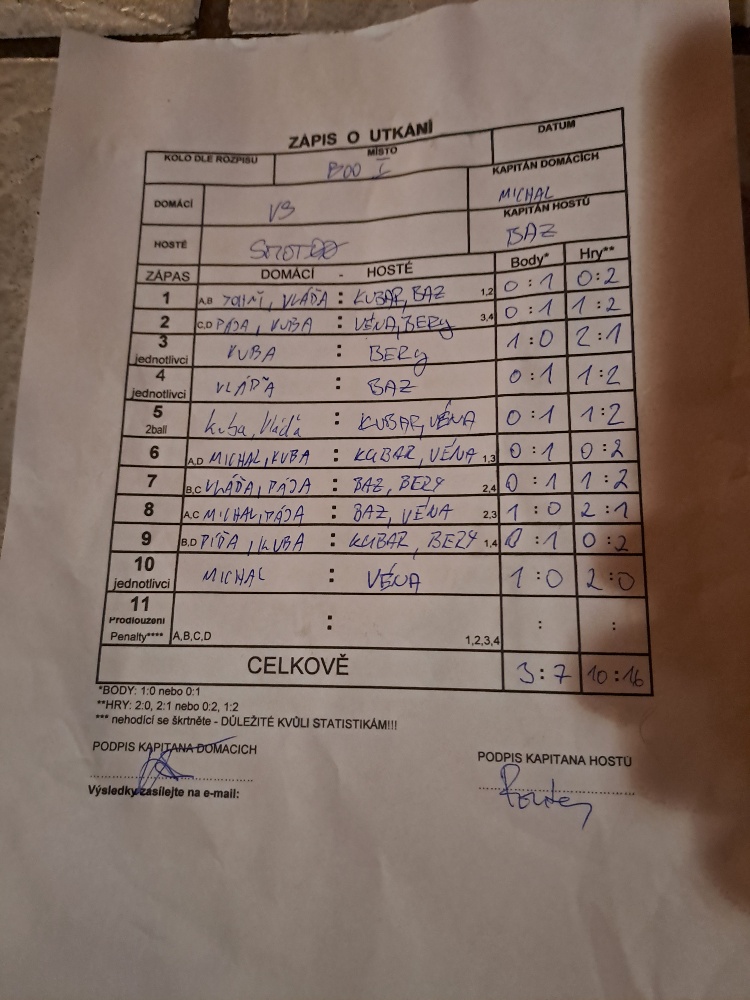 ZÁPIS O UTKÁNÍ
KOLO DLE ROZPISU MÍSTO DATUM
BOO I
DOMÁCÍ VS KAPITÁN DOMÁCÍCH
MICHAL
HOSTÉ KAPITÁN HOSTŮ
BAZ
ZÁPAS DOMÁCÍ - HOSTÉ Body* Hry**
1 A,B VLÁĎA : KUBAR, BAZ 1,2 0:1 0:2
2 C,D PÁJA, KUBA : VÉNA, BERY 3,4 0:1 1:2
3 jednotlivci KUBA : BERY 1:0 2:1
4 jednotlivci VLÁĎA : BAZ 0:1 1:2
5 2ball kuba, Vláďa : KUBAR, VÉNA 0:1 1:2
6 A,D MICHAL, KUBA : KUBAR, VÉNA 1,3 0:1 0:2
7 B,C VLÁĎA, PÁJA : BAZ, BERY 2,4 0:1 1:2
8 A,C MICHAL, PÁJA : BAZ, VÉNA 2,3 1:0 2:1
9 B,D KUBA : KUBAR, BERY 1,4 0:1 0:2
10 jednotlivci MICHAL : VÉNA 1:0 2:0
11 : : :
Prodloužení
Penalty**** A,B,C,D 1,2,3,4
CELKOVĚ 3:7 10:16
*BODY: 1:0 nebo 0:1
**HRY: 2:0, 2:1 nebo 0:2, 1:2
*** nehodící se škrtněte - DŮLEŽITÉ KVŮLI STATISTIKÁM!!!
PODPIS KAPITANA DOMACICH PODPIS KAPITANA HOSTŮ
Výsledky zasílejte na e-mail: